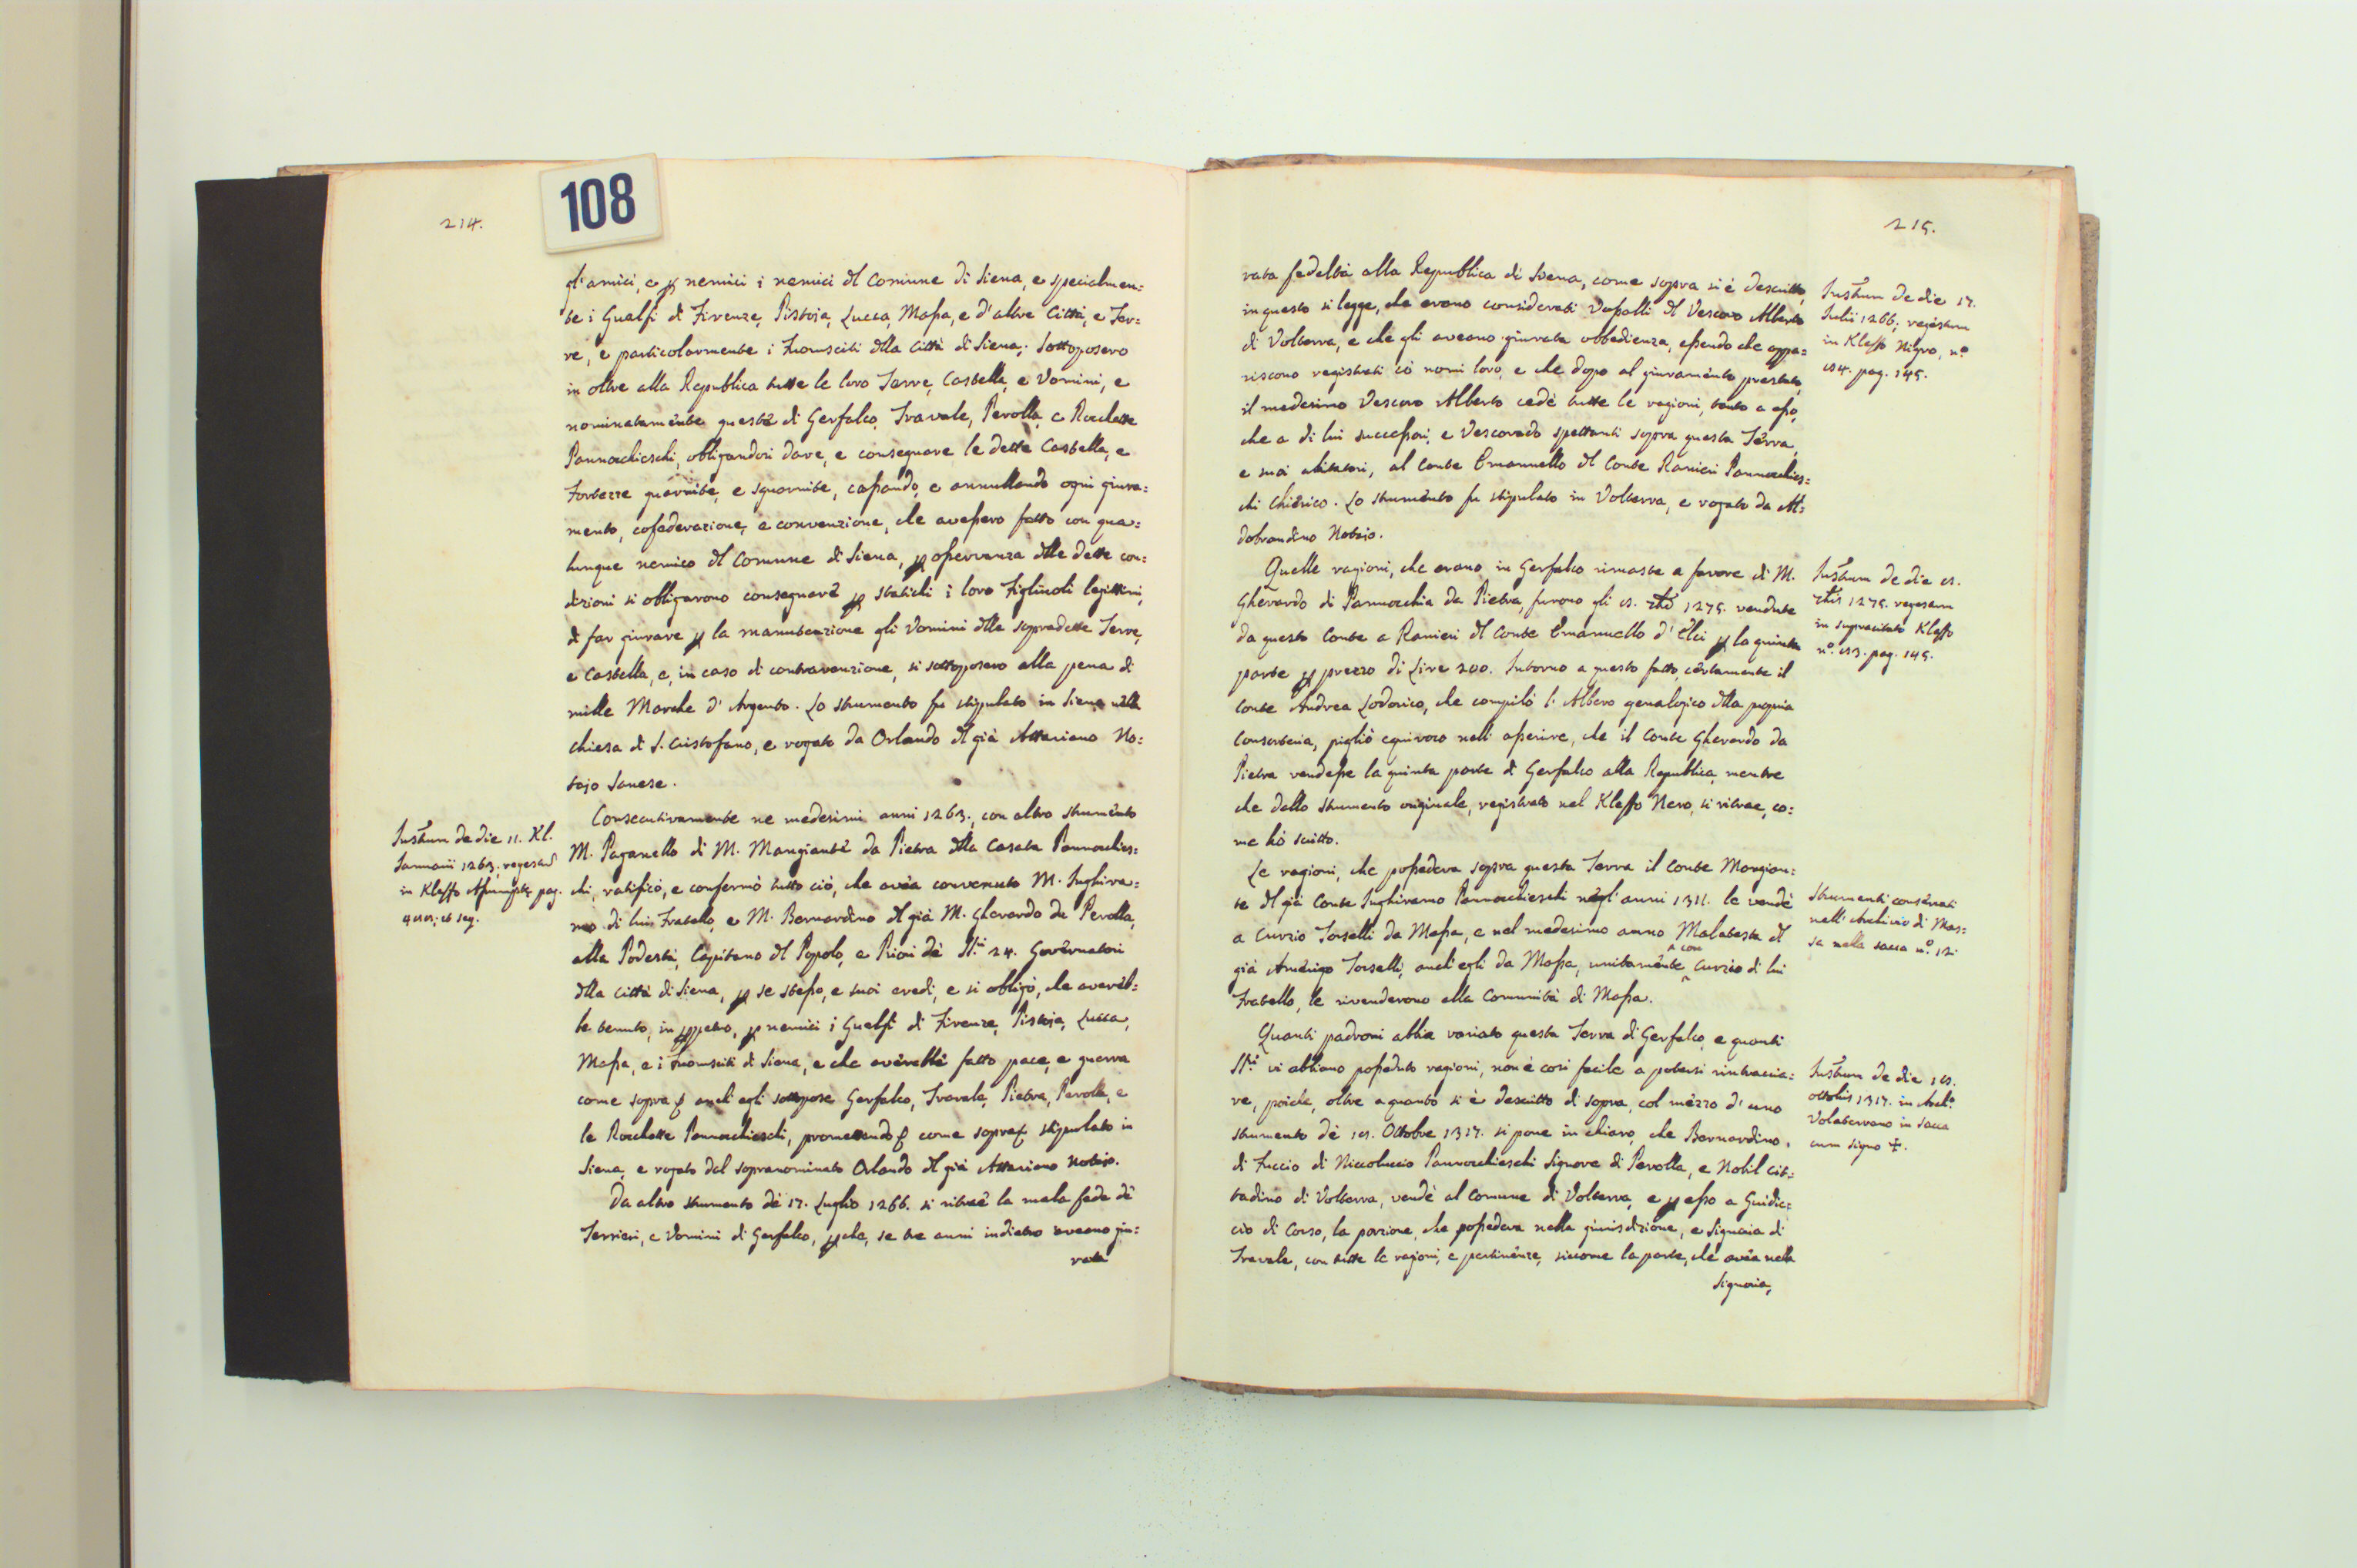 214.
108
gl' amici, e p nemici i nemici dl Comune di Siena, e specialmen=
te i Guelfi di Firenze, Pistoja, Lucca, Massa, e d'altre Città, e Ter=
re, e particolarmente i Fuorusciti dlla Città di Siena; Sottoposero
in oltre alla Republica tutte le loro Terre, Castella, e Uomini, e
nominatamente queste di Gerfalco, Travale, Perolla, e Rocchette
Pannocchieschi, obligandosi dare, e consegnare le dette Castella, e
Fortezze guarnite, e sguarnite, cassando, e annullando ogni giura=
mento, cofederazione, e convenzione, che avessero fatto con qua=
lunque nemico dl Comune di Siena, p osservanza dlle dette con=
dizioni si obligarono consegnare p statichi i loro Figliuoli legittimi,
di far giurare p la manutenzione gli Uomini dlle sopradette Terre,
e Castella, e, in caso di contravenzione, si sottoposero alla pena di
mille Marche d' Argento. Lo strumento fu stipulato in Siena nella
chiesa di S. Cristofano, e rogato da Orlando dl già Attaviano No=
tajo Sanese.
Consecutivamente ne medesimi anni 1263., con altro strumento
M. Paganello di M. Mangiante da Pietra dlla Casata Pannocchies=
chi, ratificò, e confermò tutto ciò, che avéa convenuto M. Inghira=
mo di lui Fratello, e M. Bernardino dl già M. Gherardo da Perolla,
alla Podestà, Capitano dl Popolo, e Priori dè SS.ri 24. Governatori
dlla Città di Siena, p se stesso, e suoi eredi, e si obligò, che avereb=
be tenuto, in ppetuo, p nemici i Guelfi di Firenze, Pistoja, Lucca,
Massa, e i Fuorusciti di Siena, e che averebbe fatto pace, e guerra
come sopra anch' egli sottopose Gerfalco, Travale, Pietra, Perolla, e
le Rocchette Pannocchieschi, promettendo come sopra stipulato in
Siena, e rogato dal sopranominato Orlando dl già Attaviano Notajo.
Da altro strumento dè 17. Luglio 1266. si ritrae la mala fede dè
Terrieri, e Uomini di Gerfalco, pche, se tre anni indietro aveano giu=
rata
Instum de die 11. Kl.
Jannarii 1263, regestr
in Kleffo pag.
et seq.
215.
rata fedeltà alla Republica di Siena, come sopra si è descritto,
in questo si legge, che erano considerati Vassalli dl Vescovo Alberto
di Volterra, e che gli aveano giurata obbedienza, essendo che appa=
riscono registrati i nomi loro, e che dopo al giuramento prestato,
il medesimo Vescovo Alberto cedé tutte le ragioni, tanto a esso,
che a di lui successori, e Vescovado spettanti sopra questa Terra,
e suoi abitatori, al Conte Emanuello dl Conte Ranieri Pannocchies=
chi Chierico. Lo strumento fu stipulato in Volterra, e rogato da Al=
dobrandino Notajo.
Quelle ragioni, che erano in Gerfalco rimaste a favore di M.
Gherardo di Pannocchia da Pietra, furono gli 1275. vendute
da questo Conte a Ranieri dl Conte Emanuello d' Elci p la quinta
parte p prezzo di Lire 200. Intorno a questo fatto, certamente il
Conte Andrea Lodovico, che compilò l' Albero genalogico dlla propria
Consorteria, pigliò equivoco nell' asserire, che il Conte Gherardo da
Pietra vendesse la quinta parte di Gerfalco alla Republica, mentre
che dallo strumento originale, registrato nel Kleffo Nero, si ritrae, co=
me hò scritto.
Le ragioni, che possedeva sopra questa Terra il Conte Mangian=
te dl già Conte Inghiramo Pannocchieschi négl' anni 1311. le vendé
a Curzio Torselli da Massa, e nel medesimo anno Malatesta dl
già Amerigo Torselli, anch' egli da Massa, unitamente con Curzio di lui
Fratello, le rivenderono alla Comunità di Massa.
Quanti padroni abbia variato questa Terra di Gerfalco, e quanti
SS.ri vi abbiano posseduto ragioni, non è così facile a potersi rintraccia=
re, poiche, oltre a quanto si è descritto di sopra, col mézzo d' uno
strumento dè Ottobre 1317. si pone in chiaro, che Bernardino,
di Fuccio di Niccoluccio Pannocchieschi Signore di Perolla, e Nobil Cit=
tadino di Volterra, vendé al Comune di Volterra, e p esso a Guidic=
cio di Corso, la porzione, che possedeva nella giurisdizione, e Signoria di
Travale, con tutte le ragioni, e pertinenze, siccome la parte, che avéa nella
Signoria,
Instum de die 17.
Julii 1266; registum
in Kleffo Nigro, n.o
pag. 145.
Instum de die
1275. regestum
in supracitato Kleffo
n.o pag. 145.
Strumenti conservati
nell' Archivio di Mas=
sa nella sacca n.o 12.
Instum de die
ottobris 1317. in Arch.o
Volaterrano in sacca
cum signo ✝.